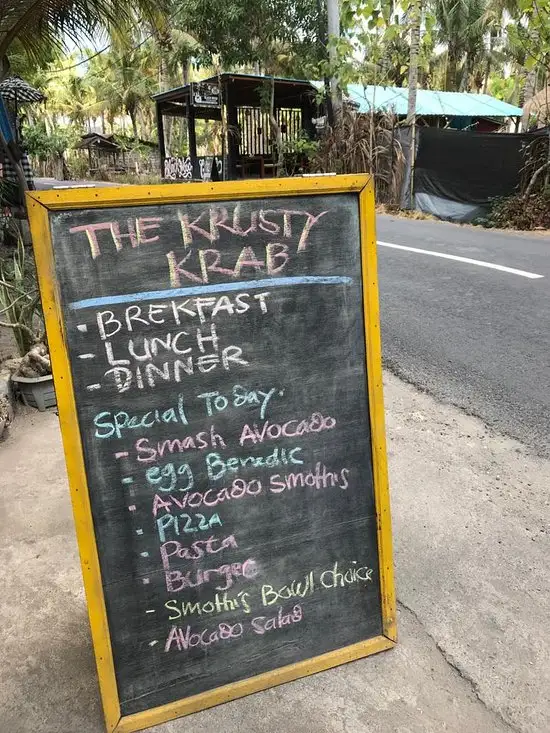 THE KRUSTY
KRAB
- BREKFAST
- LUNCH
- DINNER
Special Today.
- Smash Avocado
- egg Benedic
- Avocado Smothis
- PIZZA
- Pasta
- Burger
- Smothis Bowl Choice
- Avocado Salad